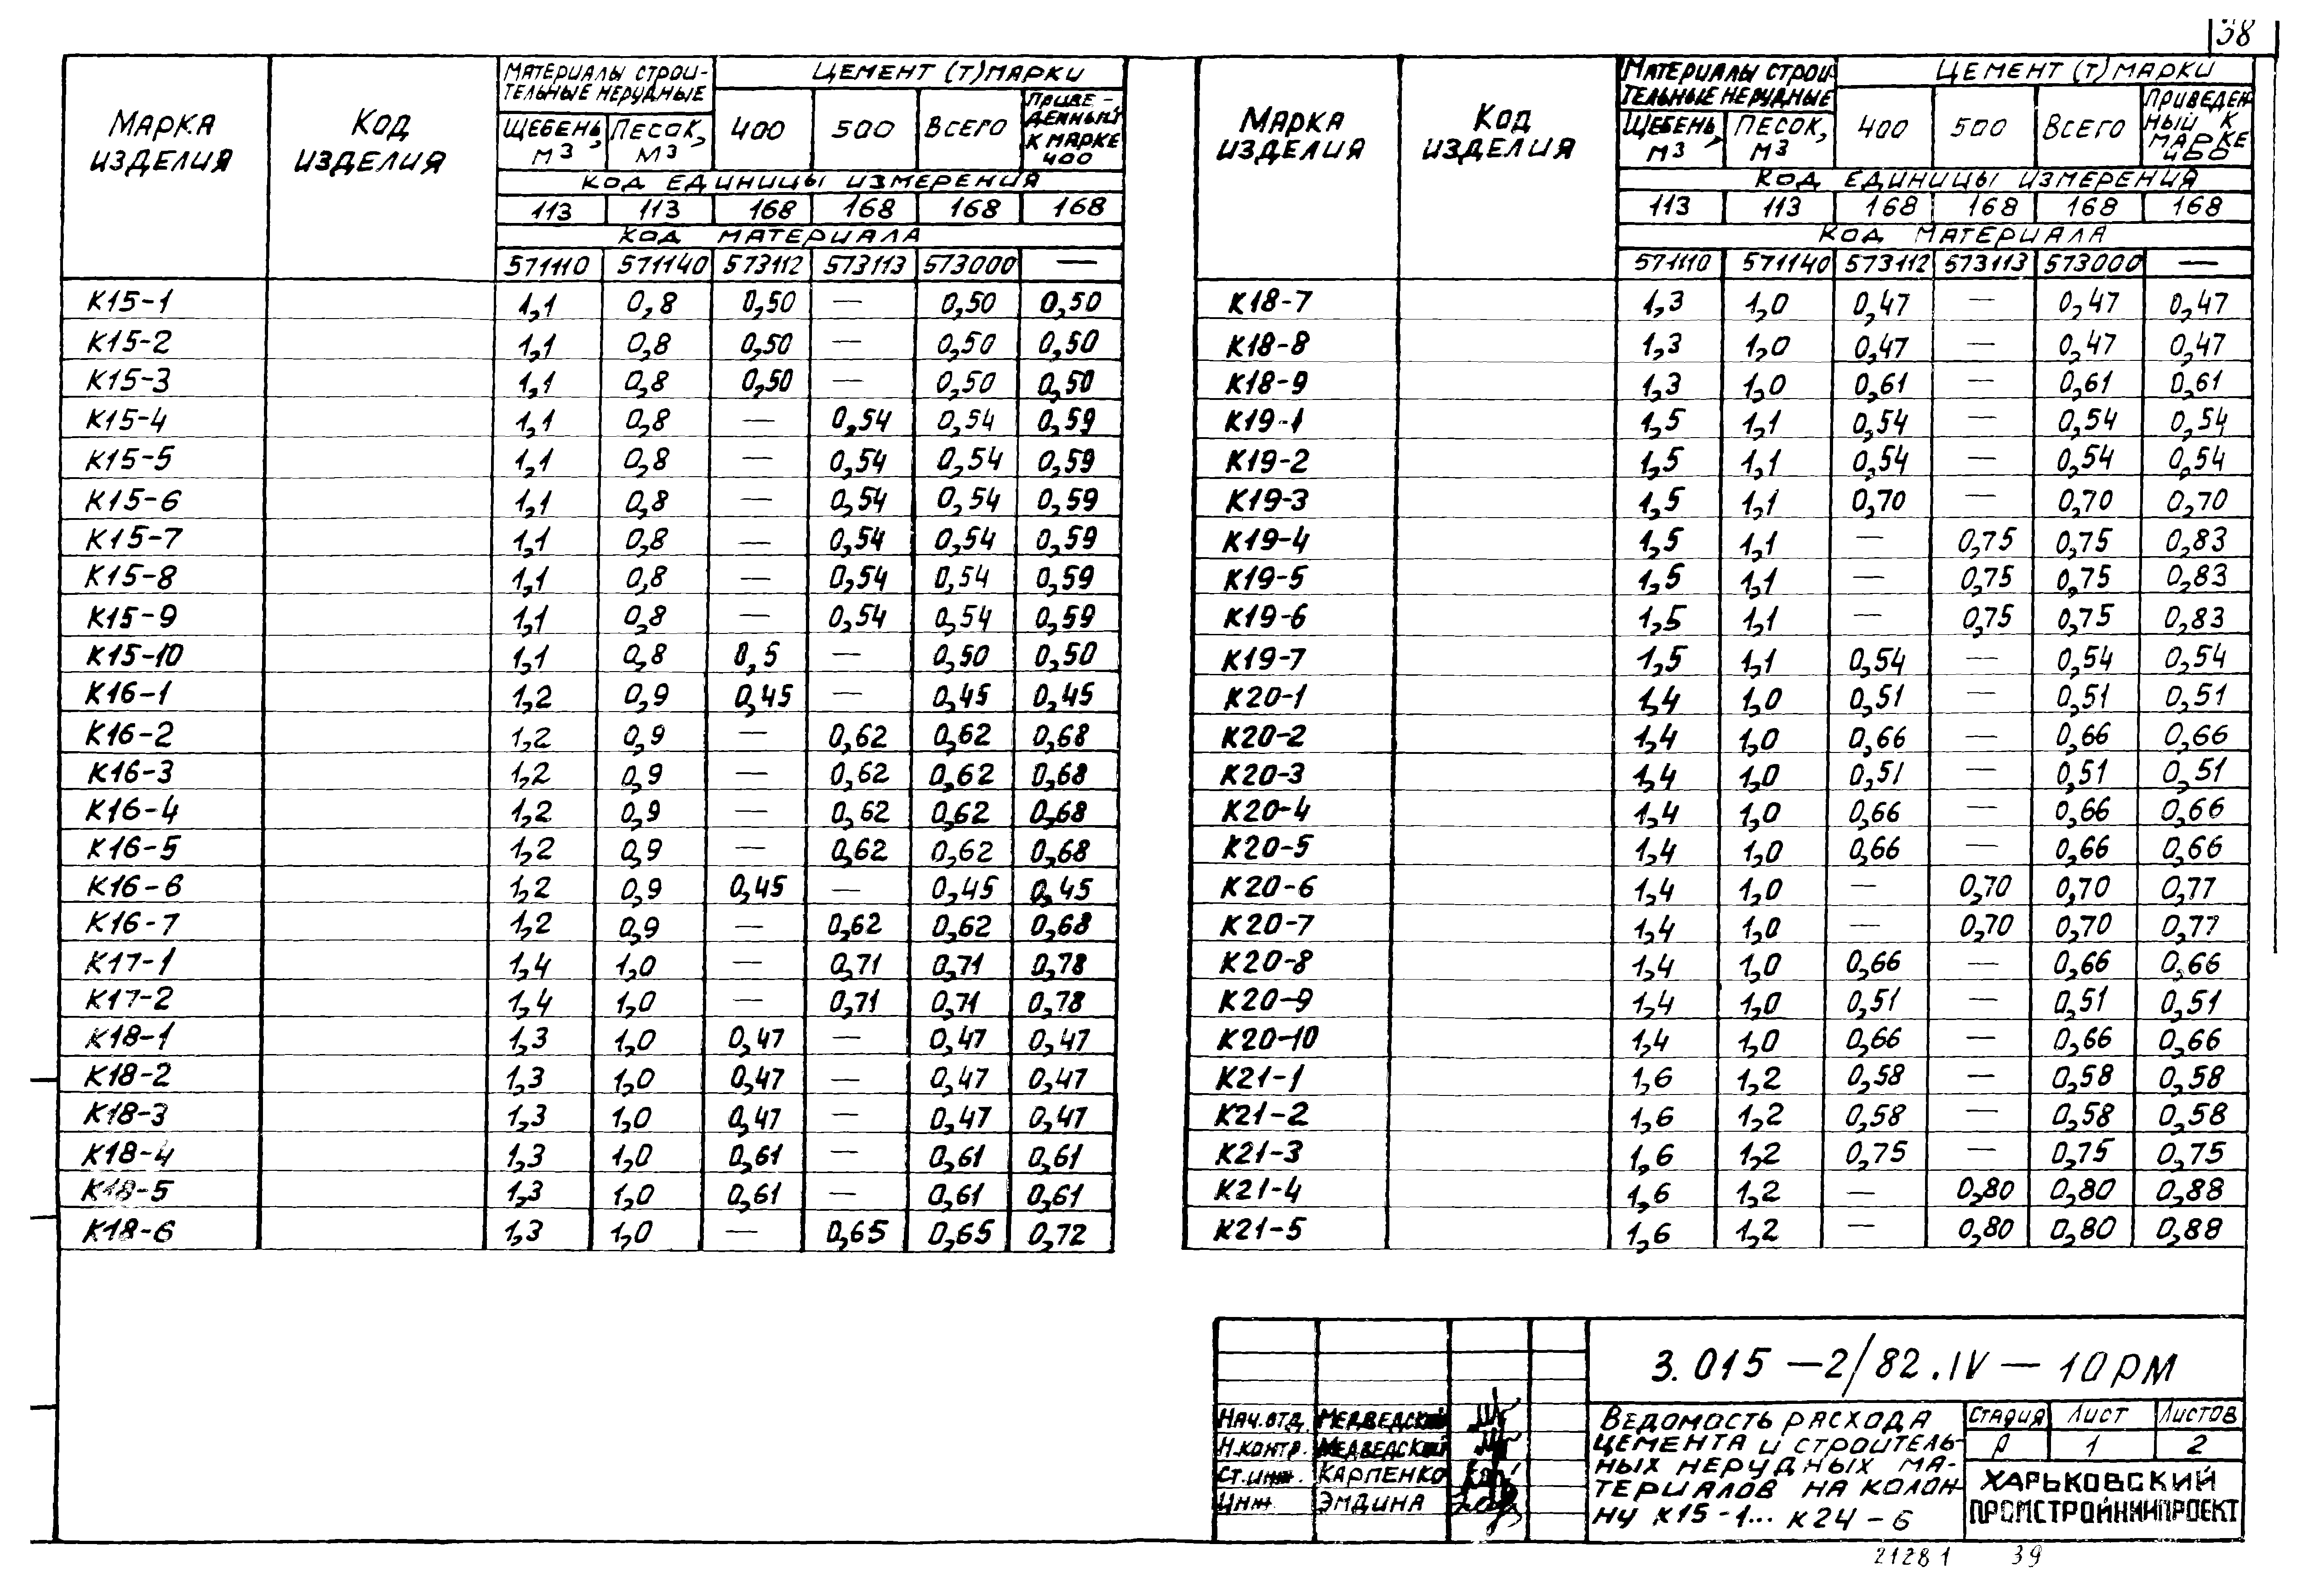 38
МАРКА ИЗДЕЛИЯ | КОД ИЗДЕЛИЯ | МАТЕРИАЛЫ СТРОИ-ТЕЛЬНЫЕ НЕРУДНЫЕ | ЦЕМЕНТ (Т) МАРКИ
ЩЕБЕНЬ, М3 | ПЕСОК, М3 | 400 | 500 | ВСЕГО | ПРИВЕ-ДЕННЫЙ К МАРКЕ 400
КОД ЕДИНИЦЫ ИЗМЕРЕНИЯ
113 | 113 | 168 | 168 | 168 | 168
КОД МАТЕРИАЛА
571110 | 571140 | 573112 | 573113 | 573000 | —
К15-1 | 1,1 | 0,8 | 0,50 | — | 0,50 | 0,50
К15-2 | 1,1 | 0,8 | 0,50 | — | 0,50 | 0,50
К15-3 | 1,1 | 0,8 | 0,50 | — | 0,50 | 0,50
К15-4 | 1,1 | 0,8 | — | 0,54 | 0,54 | 0,59
К15-5 | 1,1 | 0,8 | — | 0,54 | 0,54 | 0,59
К15-6 | 1,1 | 0,8 | — | 0,54 | 0,54 | 0,59
К15-7 | 1,1 | 0,8 | — | 0,54 | 0,54 | 0,59
К15-8 | 1,1 | 0,8 | — | 0,54 | 0,54 | 0,59
К15-9 | 1,1 | 0,8 | — | 0,54 | 0,54 | 0,59
К15-10 | 1,1 | 0,8 | 0,5 | — | 0,50 | 0,50
К16-1 | 1,2 | 0,9 | 0,45 | — | 0,45 | 0,45
К16-2 | 1,2 | 0,9 | — | 0,62 | 0,62 | 0,68
К16-3 | 1,2 | 0,9 | — | 0,62 | 0,62 | 0,68
К16-4 | 1,2 | 0,9 | — | 0,62 | 0,62 | 0,68
К16-5 | 1,2 | 0,9 | — | 0,62 | 0,62 | 0,68
К16-6 | 1,2 | 0,9 | 0,45 | — | 0,45 | 0,45
К16-7 | 1,2 | 0,9 | — | 0,62 | 0,62 | 0,68
К17-1 | 1,4 | 1,0 | — | 0,71 | 0,71 | 0,78
К17-2 | 1,4 | 1,0 | — | 0,71 | 0,71 | 0,78
К18-1 | 1,3 | 1,0 | 0,47 | — | 0,47 | 0,47
К18-2 | 1,3 | 1,0 | 0,47 | — | 0,47 | 0,47
К18-3 | 1,3 | 1,0 | 0,47 | — | 0,47 | 0,47
К18-4 | 1,3 | 1,0 | 0,61 | — | 0,61 | 0,61
К18-5 | 1,3 | 1,0 | 0,61 | — | 0,61 | 0,61
К18-6 | 1,3 | 1,0 | — | 0,65 | 0,65 | 0,72
МАРКА ИЗДЕЛИЯ | КОД ИЗДЕЛИЯ | МАТЕРИАЛЫ СТРОИ-ТЕЛЬНЫЕ НЕРУДНЫЕ | ЦЕМЕНТ (Т) МАРКИ
ЩЕБЕНЬ, М3 | ПЕСОК, М3 | 400 | 500 | ВСЕГО | ПРИВЕДЕН-НЫЙ К МАРКЕ 400
КОД ЕДИНИЦЫ ИЗМЕРЕНИЯ
113 | 113 | 168 | 168 | 168 | 168
КОД МАТЕРИАЛА
571110 | 571140 | 573112 | 573113 | 573000 | —
К18-7 | 1,3 | 1,0 | 0,47 | — | 0,47 | 0,47
К18-8 | 1,3 | 1,0 | 0,47 | — | 0,47 | 0,47
К18-9 | 1,3 | 1,0 | 0,61 | — | 0,61 | 0,61
К19-1 | 1,5 | 1,1 | 0,54 | — | 0,54 | 0,54
К19-2 | 1,5 | 1,1 | 0,54 | — | 0,54 | 0,54
К19-3 | 1,5 | 1,1 | 0,70 | — | 0,70 | 0,70
К19-4 | 1,5 | 1,1 | — | 0,75 | 0,75 | 0,83
К19-5 | 1,5 | 1,1 | — | 0,75 | 0,75 | 0,83
К19-6 | 1,5 | 1,1 | — | 0,75 | 0,75 | 0,83
К19-7 | 1,5 | 1,1 | 0,54 | — | 0,54 | 0,54
К20-1 | 1,4 | 1,0 | 0,51 | — | 0,51 | 0,51
К20-2 | 1,4 | 1,0 | 0,66 | — | 0,66 | 0,66
К20-3 | 1,4 | 1,0 | 0,51 | — | 0,51 | 0,51
К20-4 | 1,4 | 1,0 | 0,66 | — | 0,66 | 0,66
К20-5 | 1,4 | 1,0 | 0,66 | — | 0,66 | 0,66
К20-6 | 1,4 | 1,0 | — | 0,70 | 0,70 | 0,77
К20-7 | 1,4 | 1,0 | — | 0,70 | 0,70 | 0,77
К20-8 | 1,4 | 1,0 | 0,66 | — | 0,66 | 0,66
К20-9 | 1,4 | 1,0 | 0,51 | — | 0,51 | 0,51
К20-10 | 1,4 | 1,0 | 0,66 | — | 0,66 | 0,66
К21-1 | 1,6 | 1,2 | 0,58 | — | 0,58 | 0,58
К21-2 | 1,6 | 1,2 | 0,58 | — | 0,58 | 0,58
К21-3 | 1,6 | 1,2 | 0,75 | — | 0,75 | 0,75
К21-4 | 1,6 | 1,2 | — | 0,80 | 0,80 | 0,88
К21-5 | 1,6 | 1,2 | — | 0,80 | 0,80 | 0,88
3.015 — 2/82.IV — 10РМ
НАЧ.ОТД. МЕДВЕДСКИЙ
Н.КОНТР. МЕДВЕДСКИЙ
СТ.ИНЖ. КАРПЕНКО
ИНЖ. ЭМДИНА
ВЕДОМОСТЬ РАСХОДА
ЦЕМЕНТА И СТРОИТЕЛЬ-
НЫХ НЕРУДНЫХ МА-
ТЕРИАЛОВ НА КОЛОН-
НУ К15-1... К24-6
СТАДИЯ | ЛИСТ | ЛИСТОВ
Р | 1 | 2
ХАРЬКОВСКИЙ
ПРОМСТРОЙНИИПРОЕКТ
21281 39